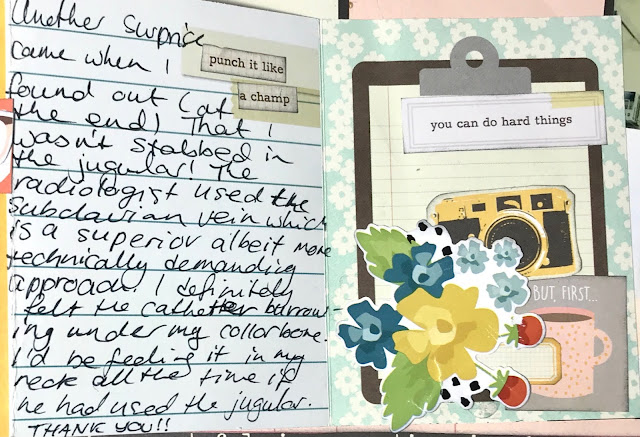 Another Surprise
came when I
punch it like
a champ
found out (at
the end) That I
wasn't stabbed in
the jugular! The
radiologist used the
subclavian vein which
is a superior albeit more
technically demanding
approach. I definitely
felt the catheter burrow-
ing under my collarbone.
I'd be feeling it in my
neck all the time if
he had used the jugular.
THANK YOU!!
you can do hard things
BUT, FIRST...